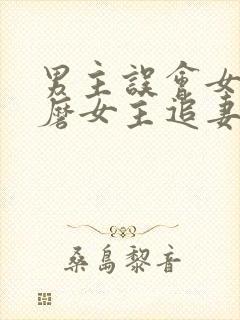 男主誤會女
磨女主追妻
桑島黎音